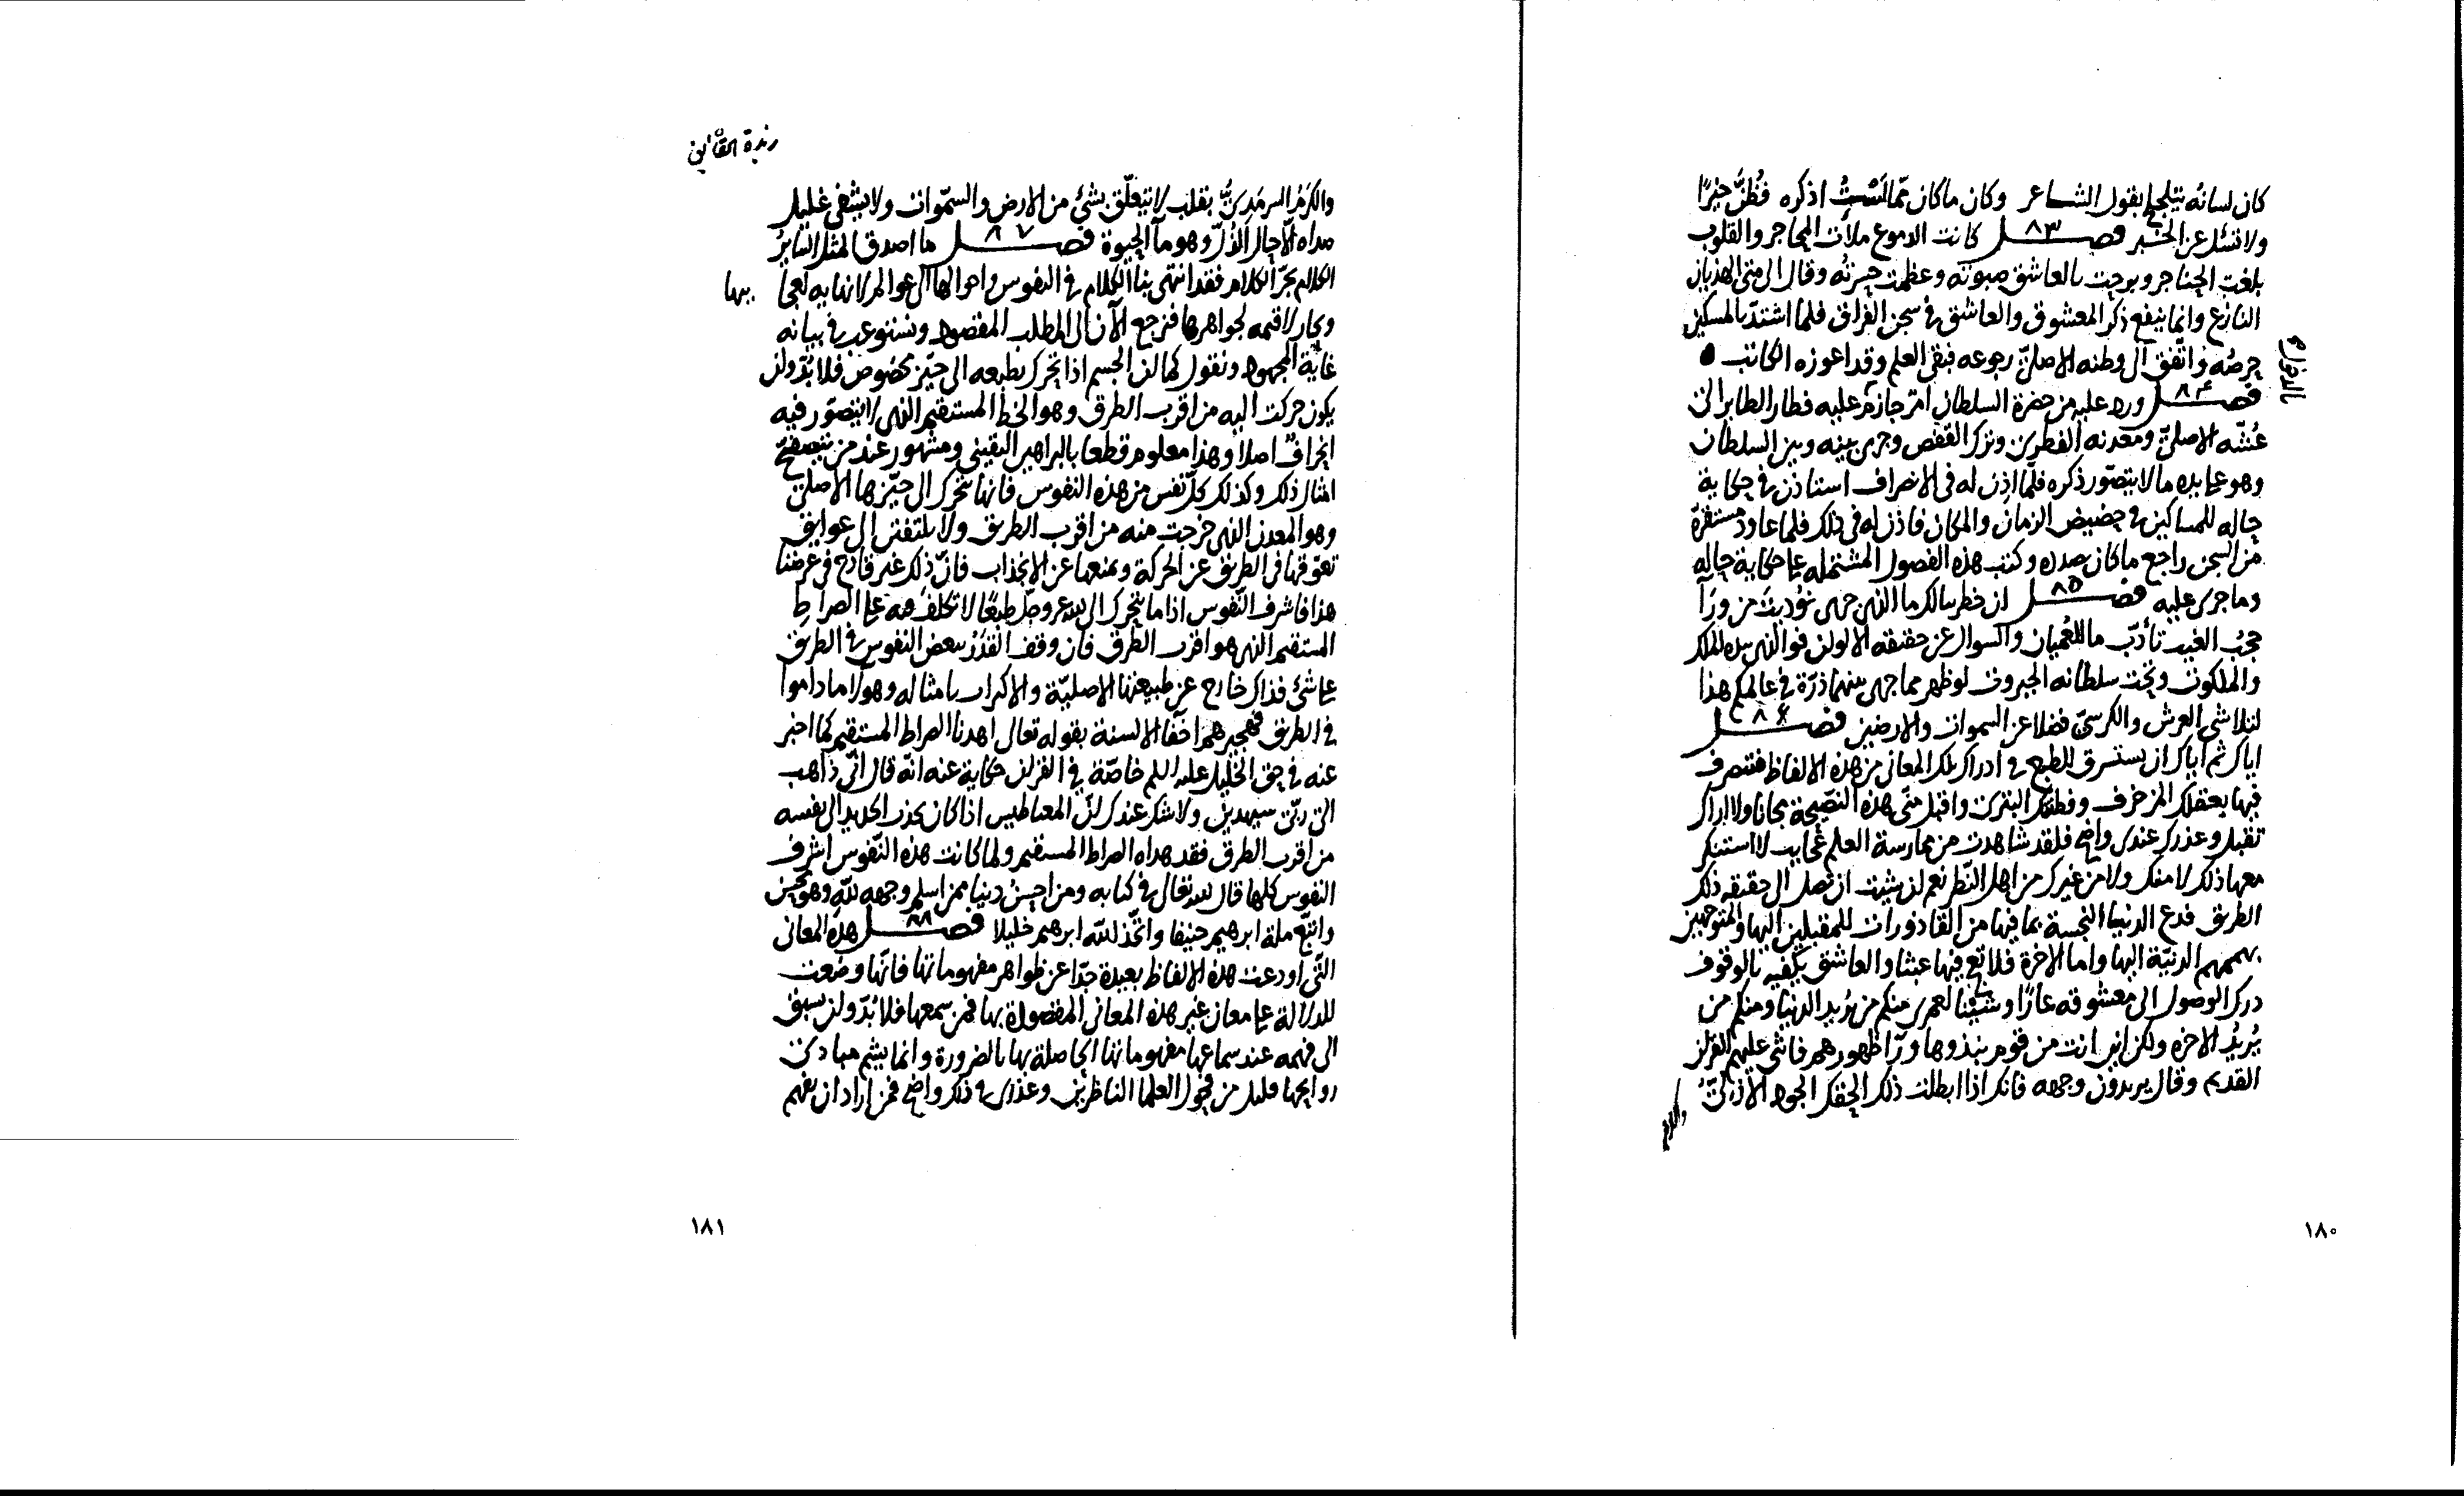 كان لسانه يتلجلج بقول الشاعر وكان ما كان مما لست اذكره فظن خيرًا
ولا تسئل عن الخبر فصل ٨٣ كانت الدموع ملأت المحاجر والقلوب
بلغت الحناجر وبرحت بالعاشق صبوته وعظمت حيرته وقال الى متى الهذيان
النازع وانما ينفع ذكر المعشوق والعاشق في سجن الفراق فلما اشتد بالمسكين
حرصه واتفق الى وطنه الاصلي رجوعه فبقى العلم وقد اعوزه الكاتب
فصل ٨٤ ورد عليه من حضرة السلطان امر جازم عليه فطار الطاير الى
عشه الاصلي ومعدنه الفطري وترك القفص وجرى بينه وبين السلطان
وهو على يده ما لا يتصور ذكره فلما اذن له في الانصراف استاذن في حكاية
حاله للمساكين في حضيض الزمان والمكان فاذن له في ذلك فلما عاود مستقره
من السجن راجع ما كان صدده وكتب هذه الفصول المشتمله على حكاية حاله
وما جرى عليه فصل ٨٥ ان خطر ببالك ما الذي جرى نوديت من ورآ
حجب الغيب تأدب ما للعميان والسوال عن حقيقة الالوان فوالذي بيده الملك
والملكوت وتحت سلطانه الجبروت لو ظهر مما جرى بينهما ذرة في عالمكم هذا
لتلاشى العرش والكرسي فضلا عن السموات والارضين فصل ٨٦
اياك ثم اياك ان يسترق الطبع في ادراك تلك المعاني من هذه الالفاظ فتتصرف
فيها بعقلك المزخرف وفطنتك البتراء واقبل مني هذه النصيحة مجانا ولا اراك
تقبل وعذرك عندي واضح فلقد شاهدت من ممارسة العلم عجايب لا استنكر
معها ذلك لا منك ولا من غيرك من اهل النظر نعم ان شيت ان تصل الى حقيقة ذلك
الطريق فدع الدنيا النجسة بما فيها من القاذورات للمقبلين اليها والمتوجهين
بهممهم الدنية اليها واما الاخرة فلا تع فيها عبثا والعاشق يكفيه بالوقوف
درك الوصول الى معشوقه عارا وشينا لعمري منكم من يريد الدنيا ومنكم من
يريد الاخرة ولكن اين انت من قوم نبذوها ورآ ظهورهم فاثنى عليهم القرآن
القديم وقال يريدون وجهه فانك اذا ابطلت ذلك الحقك الجود الازلي
والكرم
١٨٠
زبدة الحقائق
والكرم السرمدي بقلب لا يتعلق بشئ من الارض والسموات ولا يشفى غليل
صداه الا جال الذل وهو مآ الحيوة فصل ٨٧ ما اصدق المثل الساير
الكلام يجر الكلام فقد انتهى بنا الكلام في النفوس واحوالها الى عوالم لا نهايه لعجا يبها
وبحار لا قيمه لجواهرها فنرجع الآن الى المطلب المقصود ونستوعب في بيانه
غاية المجهود ونقول كما ان الجسم اذا تحرك بطبعه الى حيز مخصوص فلا بد وان
يكون حركته اليه من اقرب الطرق وهو الخط المستقيم الذي لا يتصور فيه
انحراف اصلا وهذا معلوم قطعا بالبراهين اليقيني ومشهور عند من يتصفح
امثال ذلك وكذلك كل نفس من هذه النفوس فانها تتحرك الى حيزها الاصلي
وهو المعدن الذي خرجت منه من اقرب الطريق ولا يلتفت الى عوايق
تعوقها في الطريق عن الحركة وتمنعها عن الانجذاب فان ذلك غير قادح في غرضنا
هذا فاشرف النفوس اذا ما يتحرك الى الله عز وجل طبعًا لا تكلف فيه على الصراط
المستقيم الذي هو اقرب الطرق فان وقف القدر ببعض النفوس في الطريق
على شئ فذاك خارج عن طبيعتها الاصلية والاكوار بامثاله وهولا ما داموا
في الطريق فهجيرهم اخفآ الالسنة بقوله تعالى اهدنا الصراط المستقيم كما اخبر
عنه في حق الخليل عليه السلم خاصة في القرآن حكاية عنه انه قال اني ذاهب
الى ربي سيهدين ولا شك عندك ان المغناطيس اذا كان يجذب الحديد الى نفسه
من اقرب الطرق فقد هداه الصراط المستقيم ولما كانت هذه النفوس اشرف
النفوس كلها قال الله تعالى في كتابه ومن احسن دينا ممن اسلم وجهه لله وهو محسن
واتبع ملة ابرهيم حنيفا واتخذ الله ابرهيم خليلا فصل ٨٨ هذه المعاني
التي اودعت هذه الالفاظ بعيدة جدا عن ظواهر مفهوماتها فانها وضعت
للدلالة على معان غير هذه المعاني المقصودة بها فمن سمعها فلا بد وان يسبق
الى فهمه عند سماعها مفهوماتها الحاصلة بها بالضرورة وانما يشم مبادئ
روايحها قليل من فحول العلما الناظرين وعذرى في ذلك واضح فمن اراد ان يفهم
١٨١